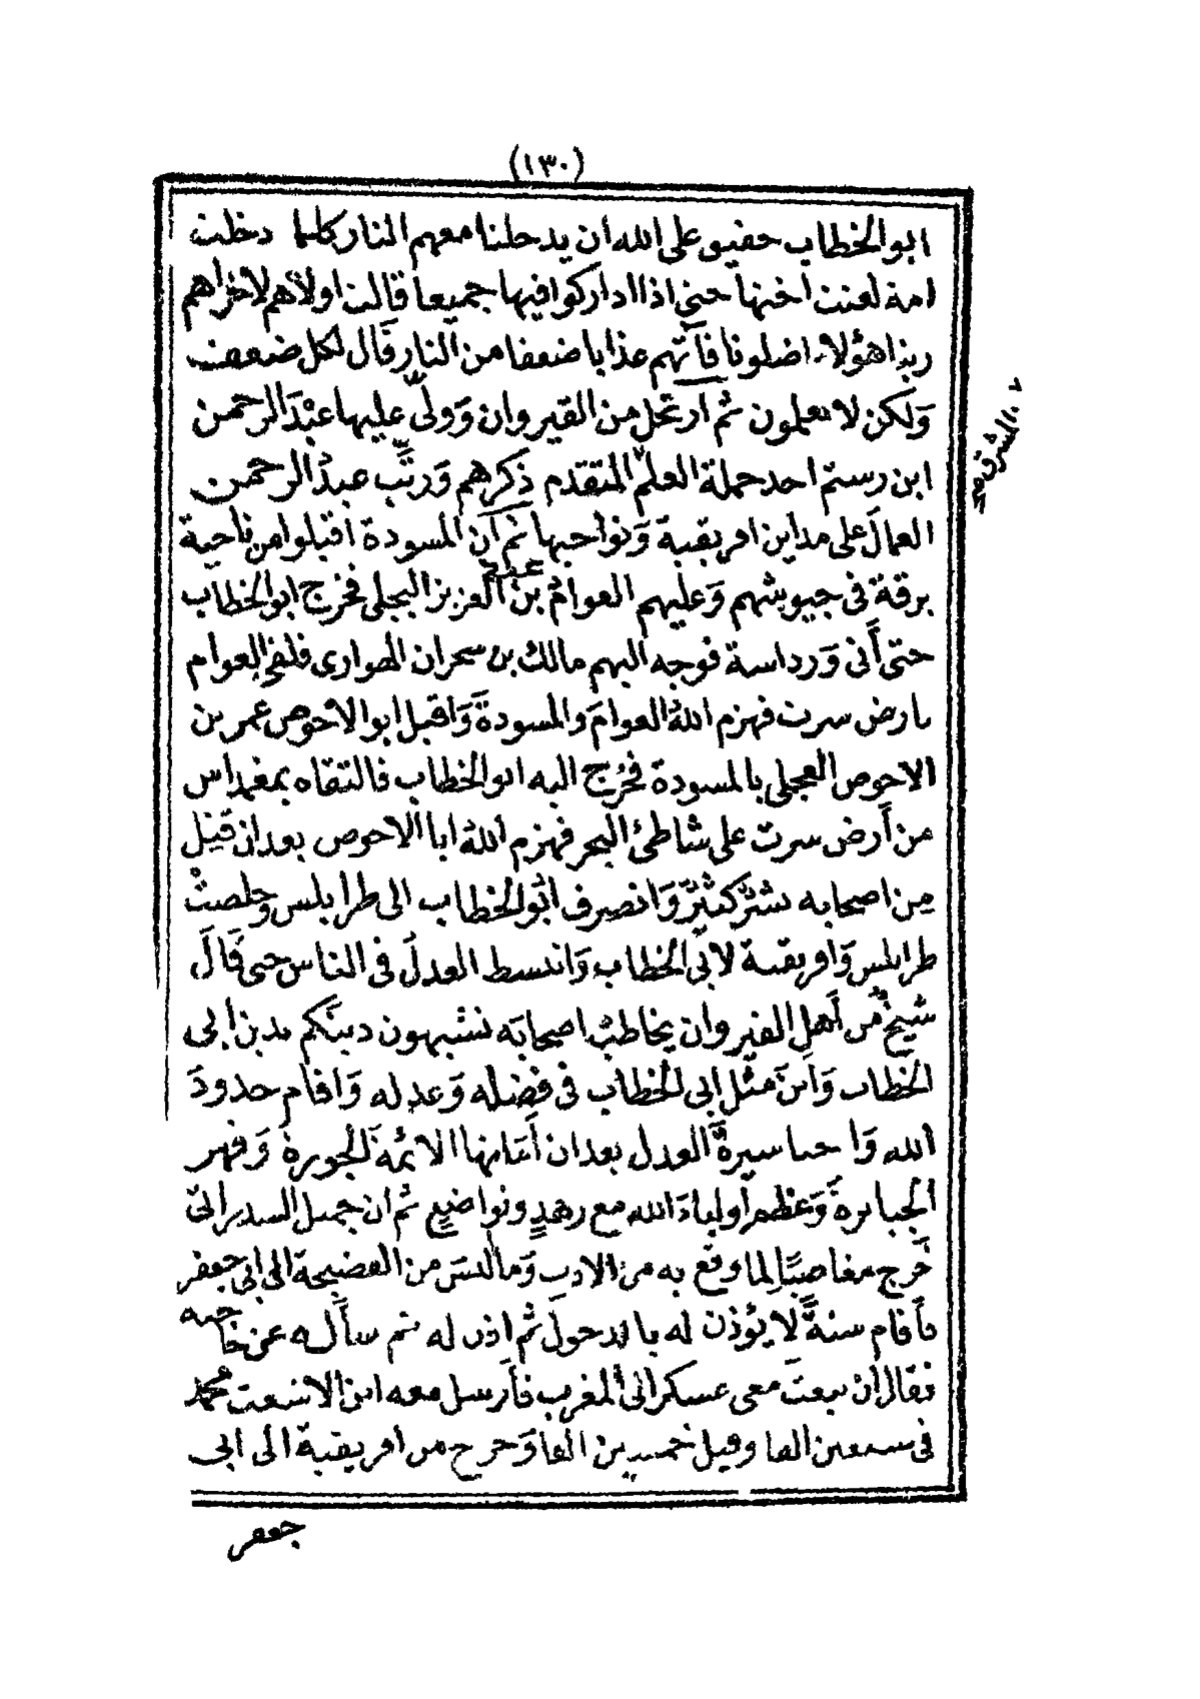 (١٣٠)
ابو الخطاب حقيق على الله ان يدخلنا معهم النار كلما دخلت
امة لعنت اختها حتى اذا اداركوا فيها جميعا قالت اولاهم لاخراهم
ربنا هؤلاء اضلونا فآتهم عذابا ضعفا من النار قال لكل ضعف
وَلكن لا تعلمون ثم ارتحل من القيروان وَولّى عليها عبْدَ الرحمن
ابن رستم احد حملة العلم المتقدم ذكرهم وَرتَّب عبدُ الرحمن
العمالَ على مداين افريقية وَنواحيها ثم ان المسودة اقبلوا من ناحية
برقة في جيوشهم وَعليهم العوامُ بن عبد العزيز البجلي فخرج ابو الخطاب
حتى أتى وَرداسة فوجه اليهم مالك بن سحران الهوارى فلقى العوام
بارض سرت فهزم اللهُ العوامَ والمسودةَ وَاقبل ابو الاحوص عمر بن
الاحوص العجلي بالمسودة فخرج اليه ابو الخطاب فالتقاه بمغمداس
من أرض سرت على شاطئ البحر فهزم اللهُ ابا الاحوص بعد ان قتل
مِن اصحابه بشرٌ كثيرٌ وَانصرف ابو الخطاب الى طرابلس وخلصتْ
طرابلس وَافريقية لابى الخطاب وَانبسط العدلُ في الناس حتى قَالَ
شيخٌ من أهل القيروان يخاطبُ اصحابَه تشبهون دينكم بدين ابي
الخطاب وَاينَ مثل ابي الخطاب في فضله وَعدله وَاقام حدودَ
الله وَاحيا سيرةَ العدل بعد ان أماتها الائمةَ الجورة وَقهر
الجبابرةَ وَعظم أولياءَ الله مع زهدٍ وتواضعٍ ثم ان جميل السدراتى
خرج مغاضبًا لما وقع به من الادب وَما لبس من الفضيحة الى ابى جعفر
فأقام سنةً لا يؤذن له بالدخول ثم اذن له ثم سأله عن حاجته
فقال ان يبعث معي عسكر الى المغرب فأرسل معه ابن الاشعث محمد
في سبعين الفا وقيل خمسين الفا وَخرج من افريقية الى ابى
جعفر